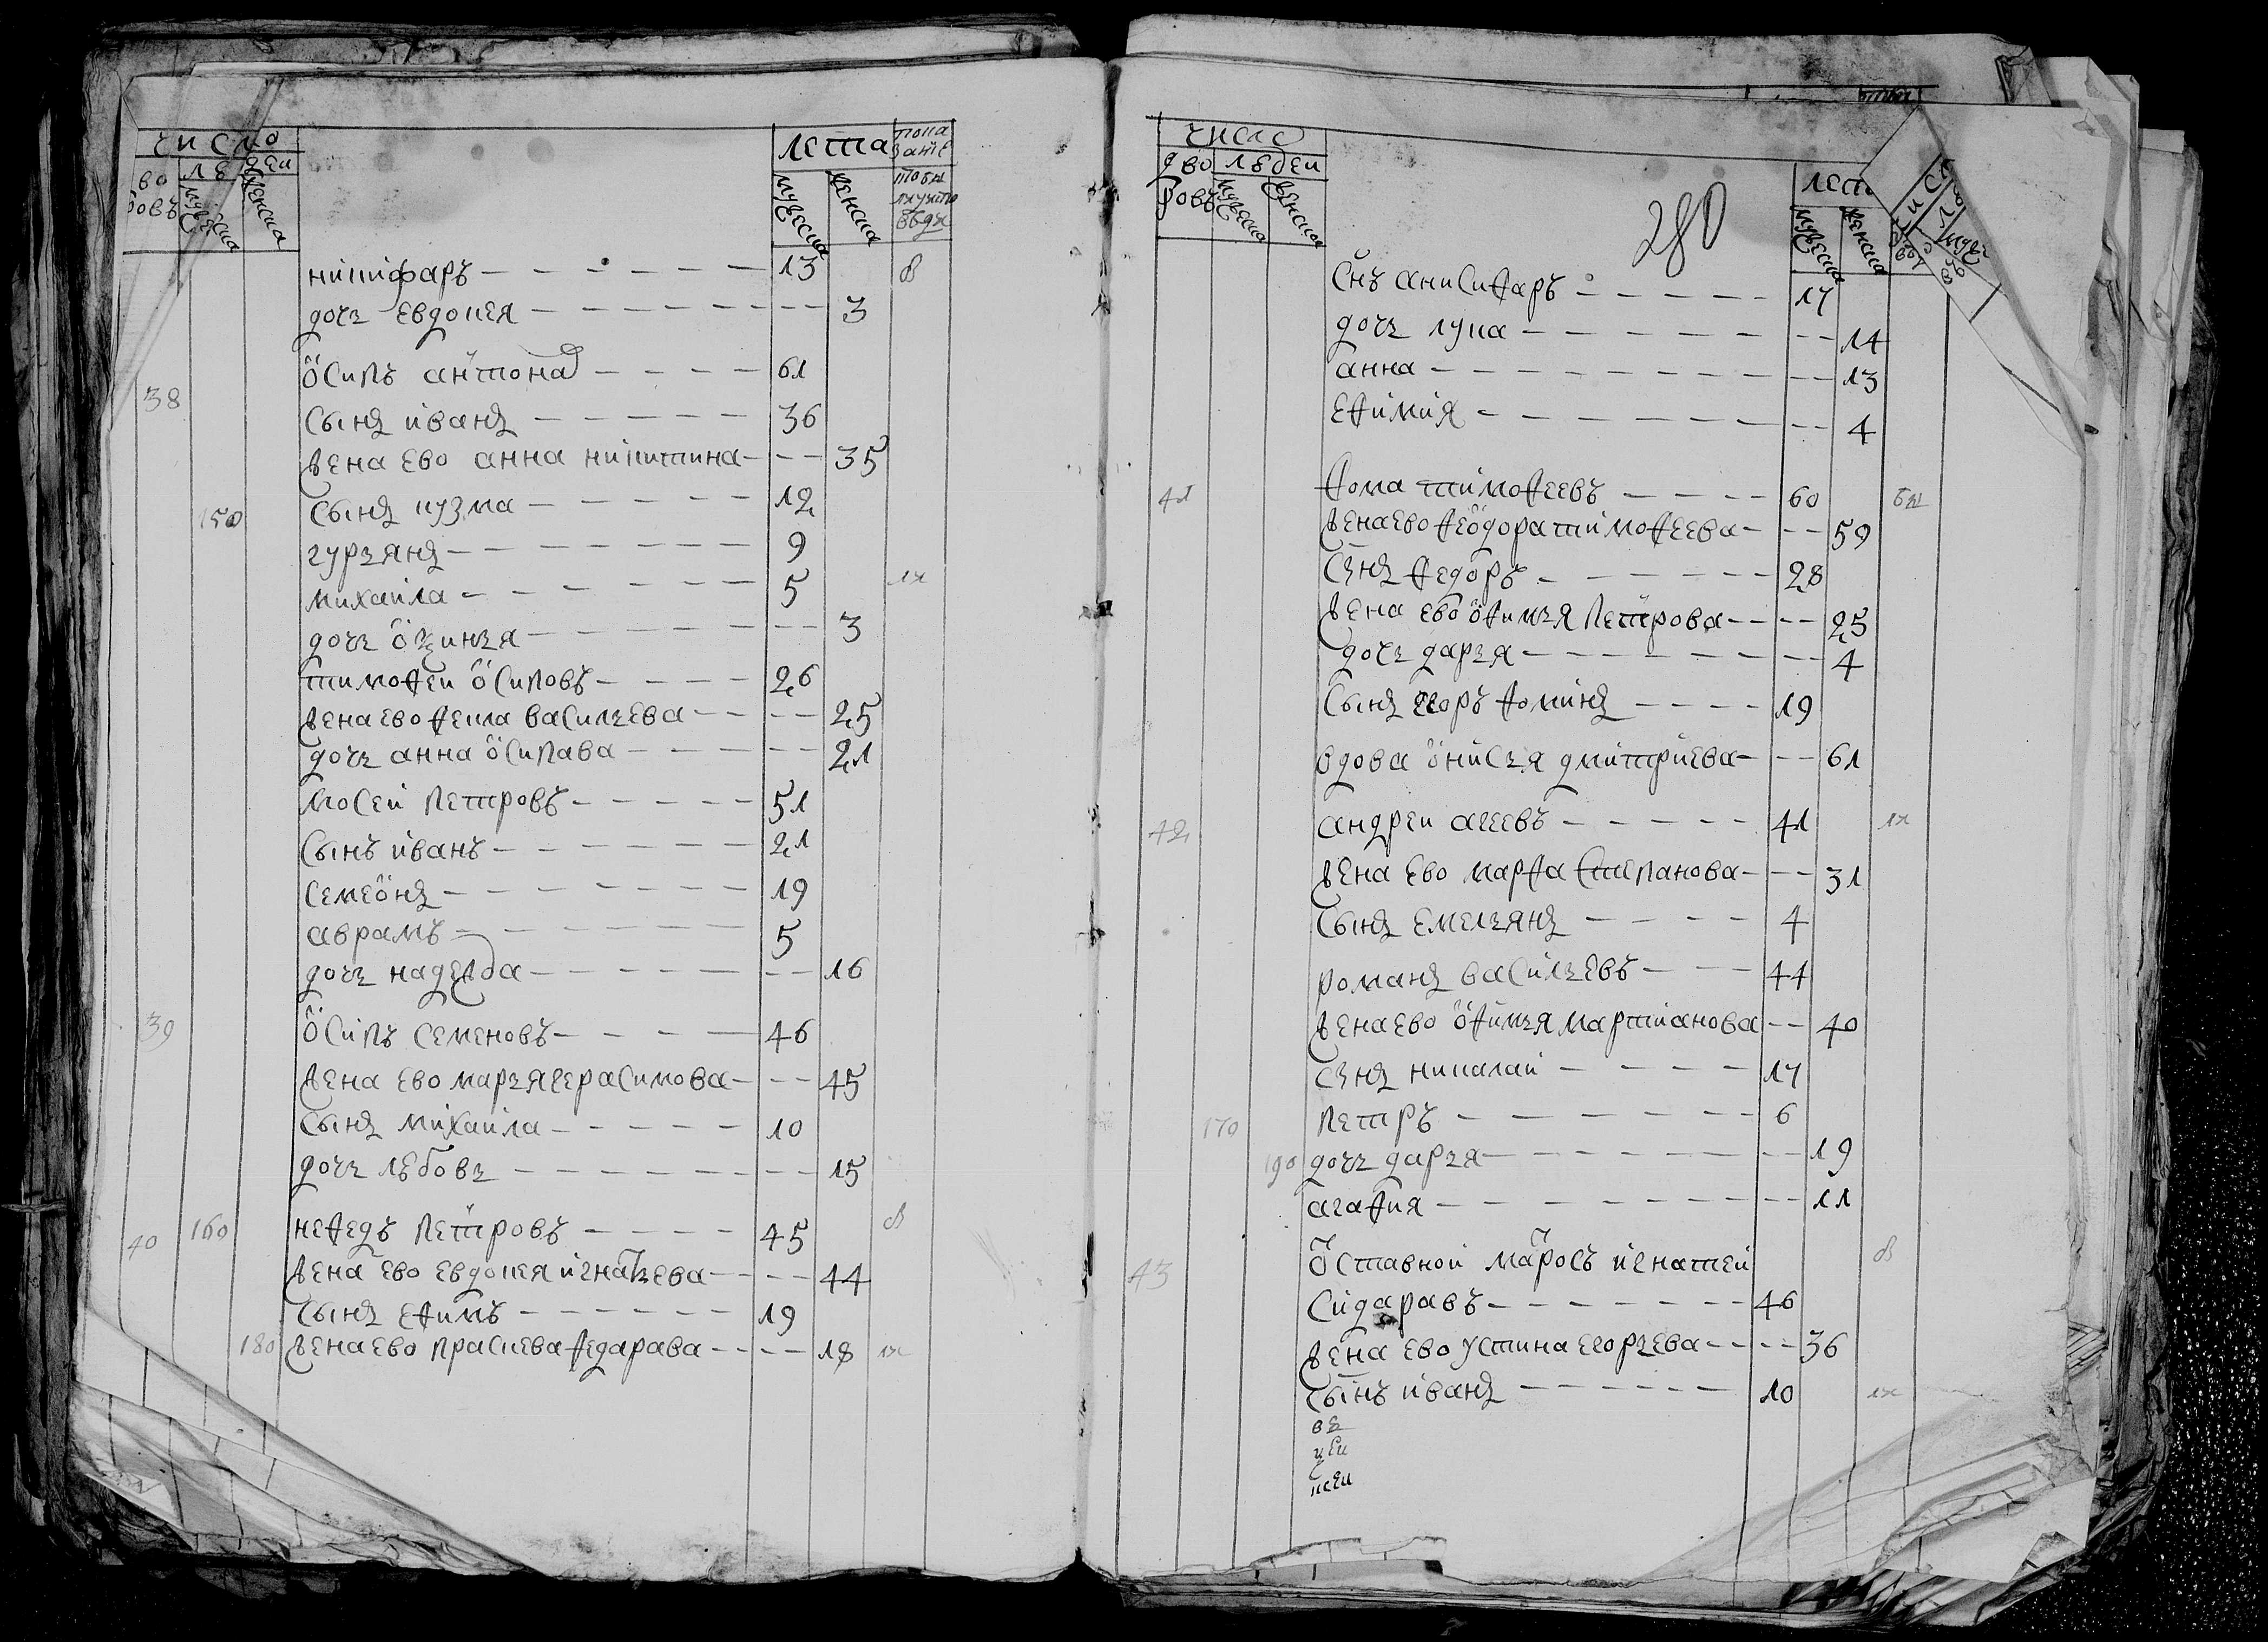 число
лета
дво
ровъ
людеи
мужеска
женска
мужеска
женска
никифаръ 13 в
дочь евдокея 3
38 осипъ антонов 61
сынъ иванъ 36
жена ево анна никитина 35
150 сынъ кузма 12
гурьянъ 9
михаила 5
дочь
3
тимофеи осиповъ 26
жена ево фекла васильева 25
дочь анна осипава 21
мосеи петровъ 51
сынъ иванъ 21
семеонъ 19
аврамъ 5
дочь надежда 16
39 осипъ семеновъ 46
жена ево марья герасимова 45
сынъ михаила 10
дочь любовь 15
40 160 нефедъ петровъ 45 в
жена ево евдокея игнатьева 44
сынъ ефимъ 19
180 жена ево прасковa федарава 18
число
дво
ровъ
людеи
мужеска
женска
280
лета
мужеска
женска
снъ анисифаръ 17
дочь лука 14
анна 13
ефимия 4
41 фома тимофеевъ 60 бы
жена ево феодора тимофеева 59
сынъ федоръ 28
жена ево офимья петрова 25
дочь дарья 4
сынъ егоръ фоминъ 19
вдова онисья дмитриева 61
42 андреи агеевъ 41
жена ево марфа степанова 31
сынъ емельянъ 4
романъ васильевъ 44
жена ево офимья мартианова 40
сынъ никалаи 17
170 петръ 6
190 дочь дарья 19
агафия 11
43 отставнои матросъ игнатеи в
сидаравъ 46
жена ево устина егорьева 36
сынъ иванъ 10